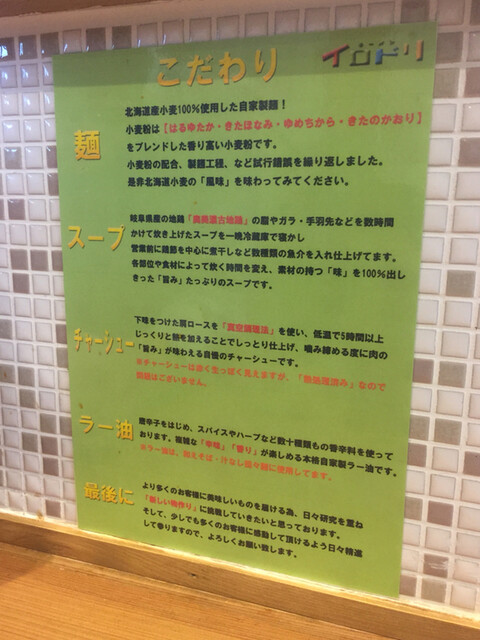 こだわり
イロドリ
麺
北海道産小麦100%使用した自家製麺!
小麦粉は【はるゆたか・きたほなみ・ゆめちから・きたのかおり】
をブレンドした香り高い小麦粉です。
小麦粉の配合、製麺工程、など試行錯誤を繰り返しました。
是非北海道小麦の「風味」を味わってみてください。
スープ
岐阜県産の地鶏「奥美濃古地鶏」の脂やガラ・手羽先などを数時間
かけて炊き上げたスープを一晩冷蔵庫で寝かし
営業前に雄節を中心に煮干しなど数種類の魚介を入れ仕上げてます。
各部位や食材によって炊く時間を変え、素材の持つ「味」を100%出し
きった「旨み」たっぷりのスープです。
チャーシュー
下味をつけた肩ロースを「真空調理法」を使い、低温で5時間以上
じっくりと熱を加えることでしっとり仕上げ、噛み締める度に肉の
「旨み」が味わえる自慢のチャーシューです。
※チャーシューは赤く生っぽく見えますが、「熱処理済み」なので
問題はございません。
ラー油
唐辛子をはじめ、スパイスやハーブなど数十種類もの香辛料を使って
おります。複雑な「辛味」「香り」が楽しめる本格自家製ラー油です。
※ラー油は、和えそば・汁なし担々麺に使用してます。
最後に
より多くのお客様に美味しいものを届ける為、日々研究を重ね
「新しい物作り」に挑戦していきたいと思っております。
そして、少しでも多くのお客様に感動して頂けるよう日々精進
して参りますので、よろしくお願い致します。